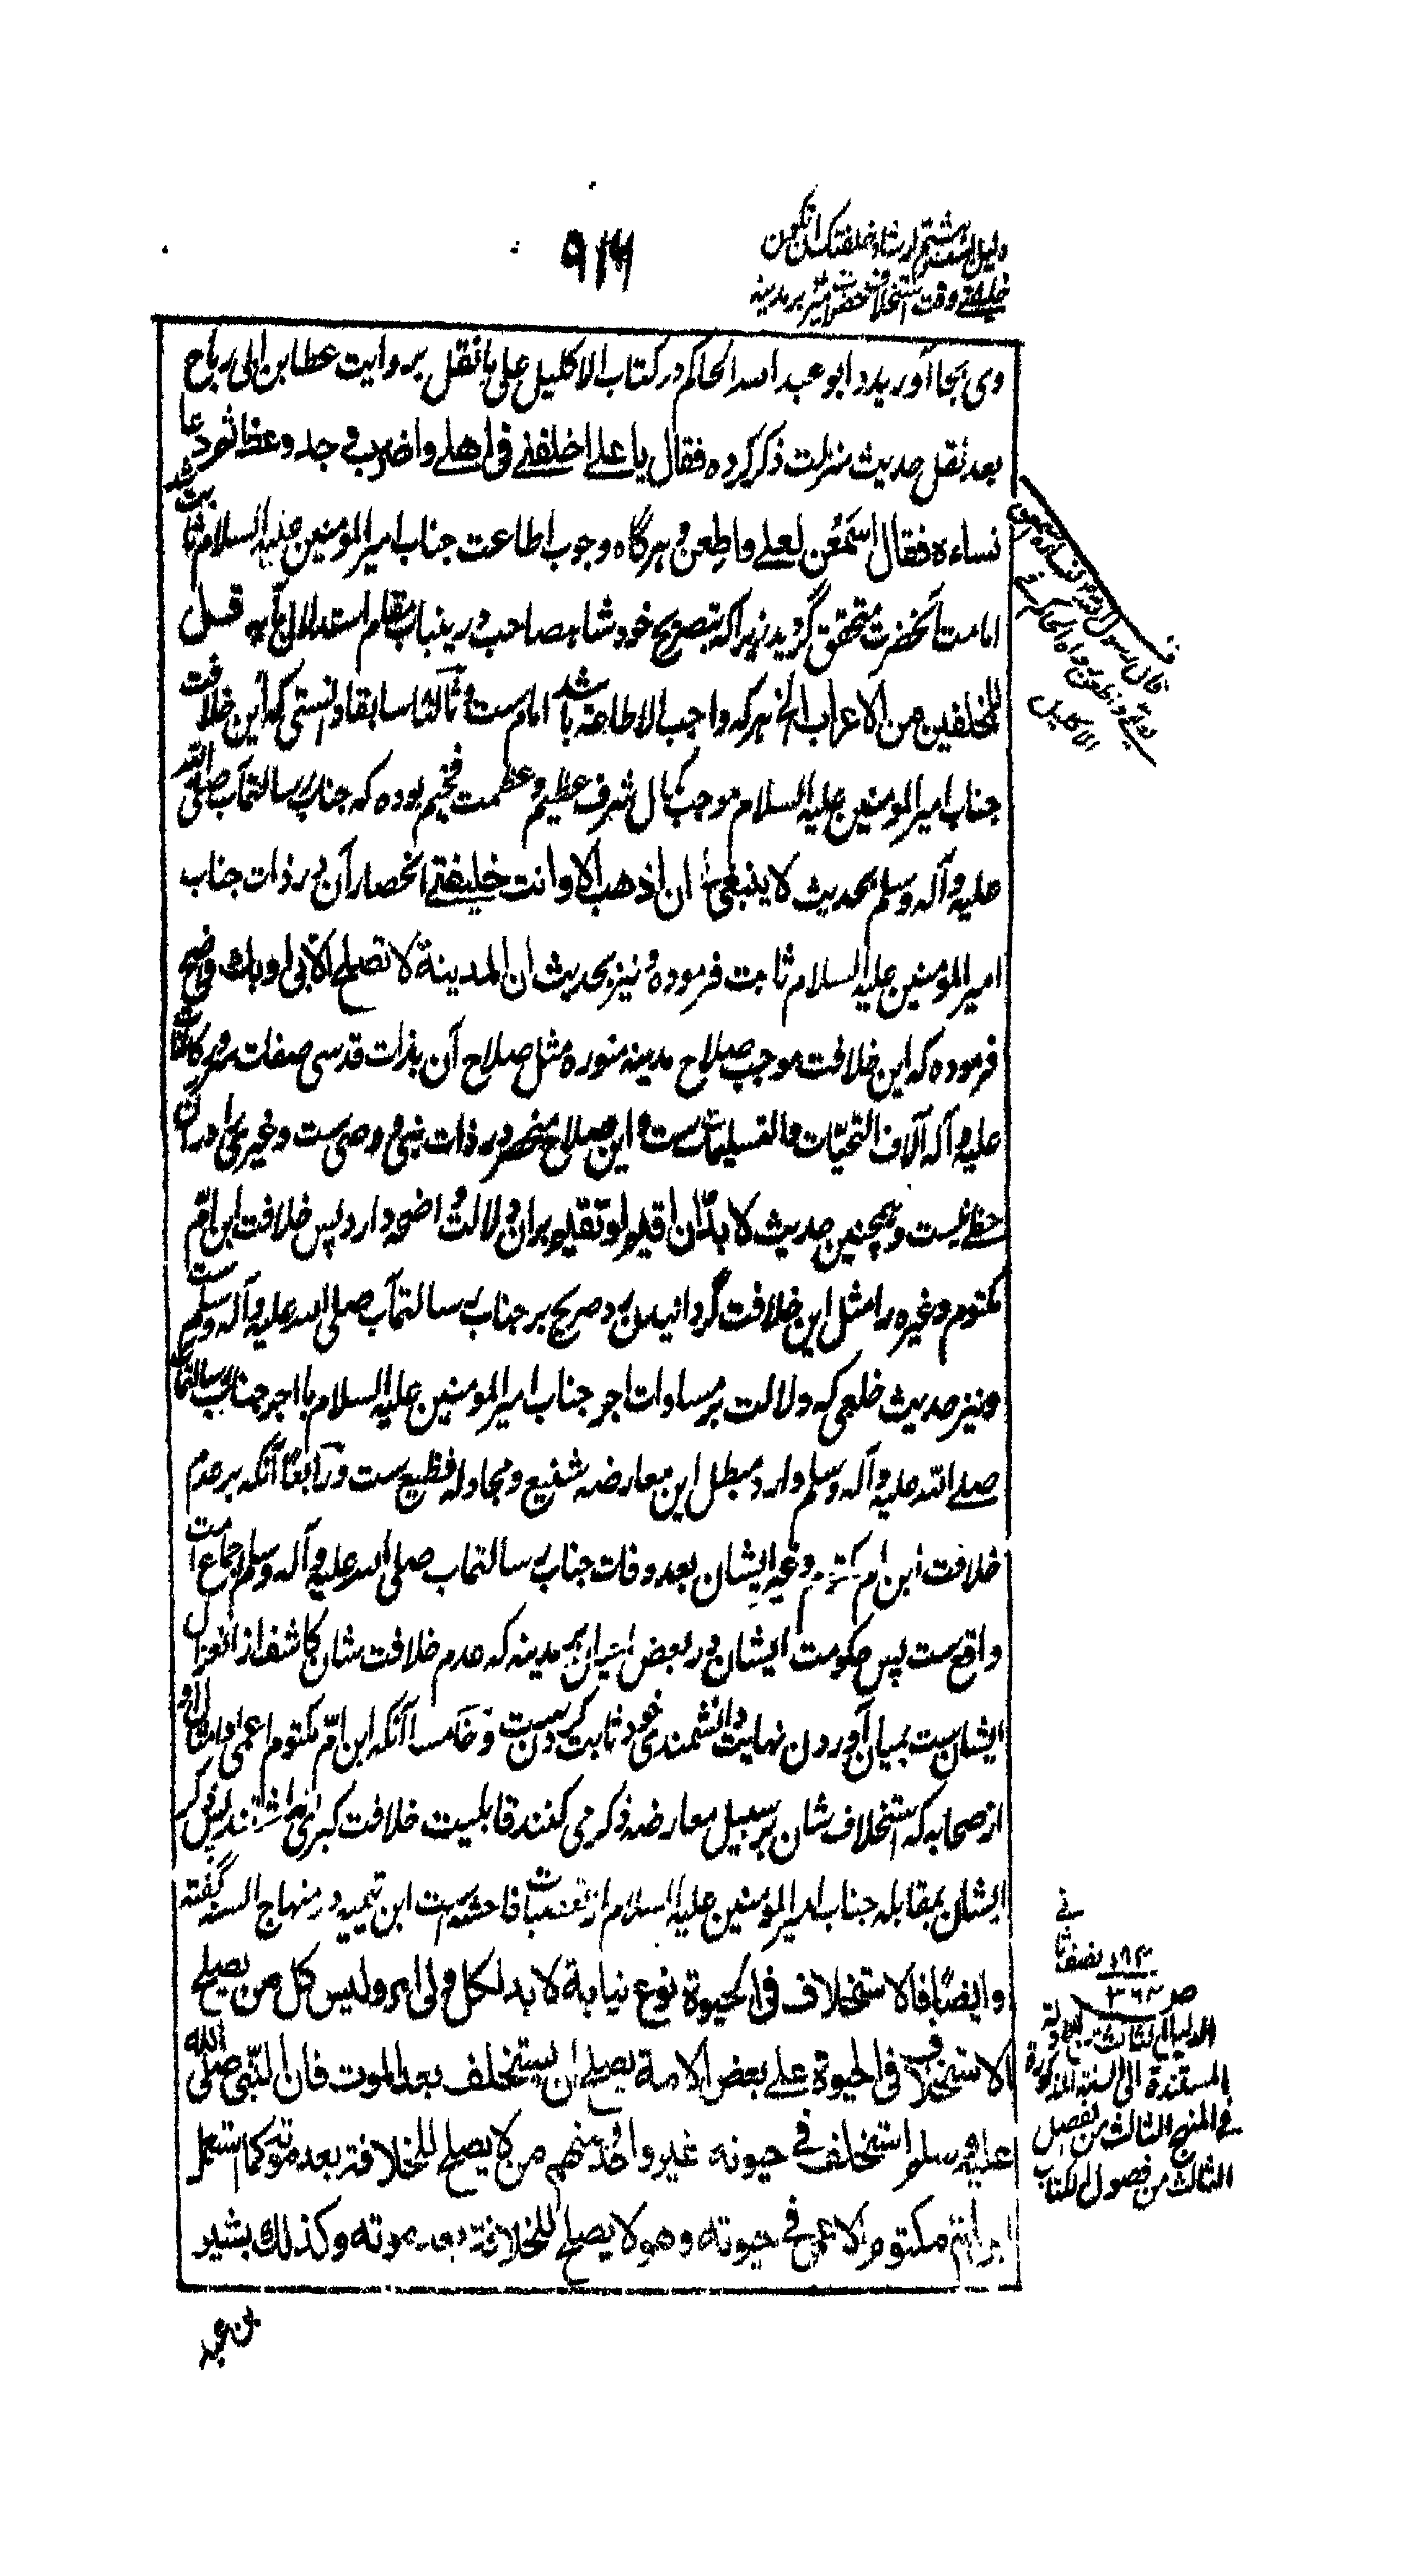 ۹۱۶
وی بجا آورید و ابو عبد الله الحاکم در کتاب الاکلیل علی ما نقل بروایت عطا بن ابی رباح
بعد نقل حدیث منزلت ذکر کرده فقال یا علی اخلفنی فی اهلی و اضرب و جد و عظ ثم دعا
نساءه فقال اسمعن لعلی و اطعن و هرگاه وجوب اطاعت جناب امیر المؤمنین علیه السلام ثابت شد
امامت آنحضرت متحقق گردید زیرا که بتصریح خود شاهصاحب درینباب بمقام استدلال بآیه قل
للمخلفین من الاعراب الخ هر که واجب الاطاعة باشد امام ست و ثالثا سابقا دانستی که این خلافت
جناب امیر المؤمنین علیه السلام موجب کمال شرف عظیم و عظمت فخیم بوده که جناب رسالتمآب صلی الله
علیه و آله وسلم بحدیث لا ینبغی ان اذهب الا وانت خلیفتی انحصار آن در ذات جناب
امیر المؤمنین علیه السلام ثابت فرموده و نیز بحدیث ان المدینة لا تصلح الا بی او بک واضح
فرموده که این خلافت موجب صلاح مدینه منوره مثل صلاح آن بذات قدسی صفات سرور کائنات
علیه و آله آلاف التحیات والتسلیمات ست و این صلاح منحصر در ذات نبی و وصی ست و غیری را در آن
حظی نیست و همچنین حدیث لا بد ان اقیم او تقیم بران دلالت واضحه دارد پس خلافت ابن ام
مکتوم و غیره را مثل این خلافت گردانیدن رد صریح بر جناب رسالتمآب صلی الله علیه و آله وسلم ست
و نیز حدیث خلعی که دلالت بر مساوات اجر جناب امیر المؤمنین علیه السلام با اجر جناب رسالتمآب
صلی الله علیه و آله وسلم دارد مبطل این معارضه شنیع و مجادله فظیع ست و رابعا آنکه بر عدم
خلافت ابن ام مکتوم و غیر ایشان بعد وفات جناب رسالتمآب صلی الله علیه و آله وسلم اجماع امت
واقع ست پس حکومت ایشان در بعض احیان بر مدینه که عدم خلافت شان کاشف از انعزال
ایشان ست بمیان آوردن نهایت دانشمندی خود ثابت کردن ست و خامسا آنکه ابن ام مکتوم اعمی و امثال او
از صحابه که استخلاف شان بر سبیل معارضه ذکر می کنند قابلیت خلافت کبری نداشتند پس ذکر
ایشان بمقابله جناب امیر المؤمنین علیه السلام از تعصبات فاحشه است ابن تیمیه در منهاج السنه گفته
وایضا فالاستخلاف فی الحیوة نوع نیابة لا بد لکل ولی امر ولیس کل من یصلح
للاستخلاف فی الحیوة علی بعض الامة یصلح ان یستخلف بعد الموت فان النبی صلی الله
علیه وسلم استخلف فی حیوته غیر واحد منهم من لا یصلح للخلافة بعد موته کما استعمل
ابن ام مکتوم الاعمی فی حیوته وهو لا یصلح للخلافة بعد موته وکذلک بشیر
بن عبد
المستندة الی السنة
فی المنهج الثالث من الفصل
الثالث من فصول الکتاب